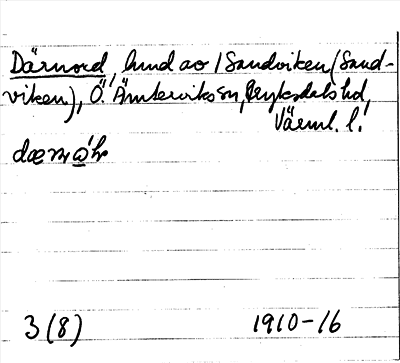 Därnord, lund av /Sandviken (Sand-
viken), Ö. Ämterviks sn, Fryksdals hd,
Värml. l.
3 (8) 1910-16